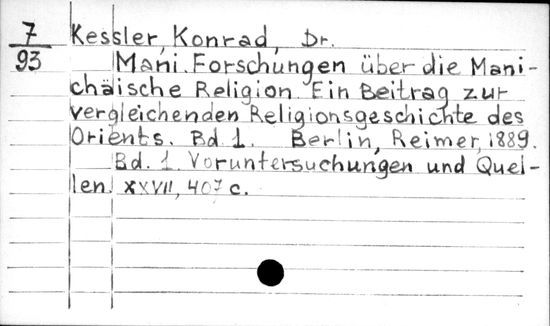 7 Kessler, Konrad, Dr.
93 Mani. Forschungen über die Mani-
chäische Religion. Ein Beitrag zur
vergleichenden Religionsgeschichte des
Orients. Bd. 1. Berlin, Reimer, 1889.
Bd. 1. Voruntersuchungen und Quel-
len. XXVII, 407 c.